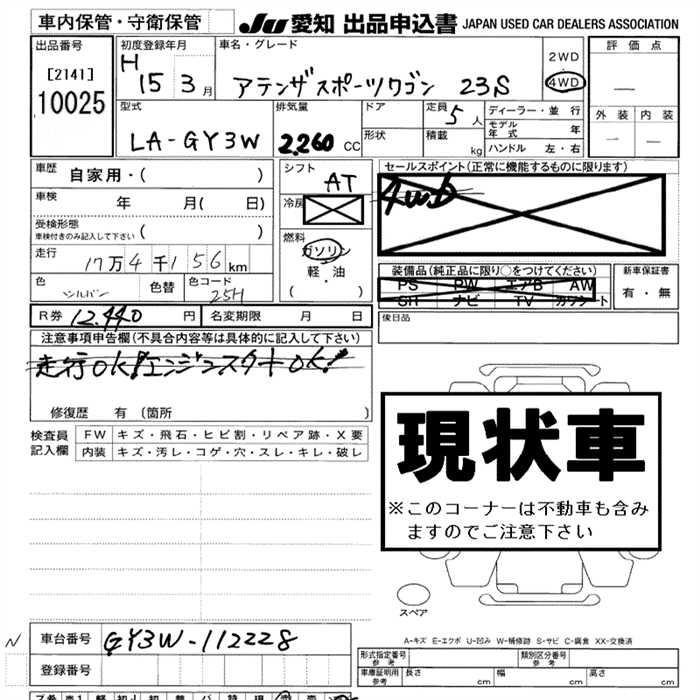 車内保管・守衛保管
JU 愛知 出品申込書 JAPAN USED CAR DEALERS ASSOCIATION
出品番号
[2141]
10025
初度登録年月
H 15 3月
車名・グレード
アテンザスポーツワゴン 23S
2WD
4WD
評価点
外装 内装
型式
LA-GY3W
排気量
2.260 CC
ドア
形状
定員 5人
積載 kg
ディーラー・並行
モデル年式 年
ハンドル 左・右
車歴 自家用・( )
車検 年 月( 日)
受検形態
車検付きのみ記入して下さい ( )
走行 17万4千156km
色 シルバー 色替 色コード 25H
シフト AT
冷房
燃料
ガソリン
軽・油
( )
セールスポイント(正常に機能するものに限ります)
4WD
装備品(純正品に限り○をつけてください)
PS PW エアB AW
SH ナビ TV カワシート
新車保証書
有・無
後日品
R券 12.440円 名変期限 月 日
注意事項申告欄(不具合内容等は具体的に記入して下さい)
走行OK!エンジンスタートOK!
修復歴 有(箇所 )
検査員記入欄
FW キズ・飛石・ヒビ割・リペア跡・X要
内装 キズ・汚レ・コゲ・穴・スレ・キレ・破レ
現状車
※このコーナーは不動車も含み
ますのでご注意下さい
スペア
A-キズ E-エクボ U-凹み W-補修跡 S-サビ C-腐食 XX-交換済
N
車台番号 GY3W-112228
登録番号
形式指定番号
参考
類別区分番号
参考
車庫証明用
参考
長さ cm 幅 cm 高さ cm